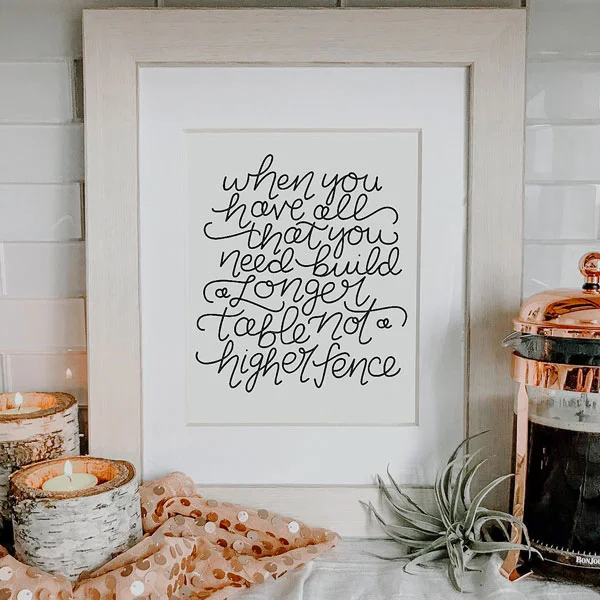 when you
have all
that you
need build
a Longer
table not a
higher fence
BONJO